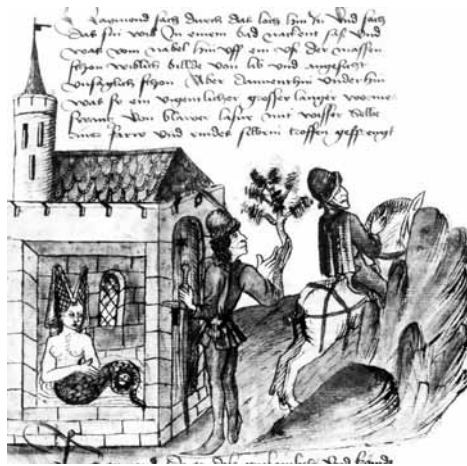 Raymond sach durch das loch hin in Vnd sach
das sin wib Jn einem bad nackent saß Vnd
was vom nabel hin vff ein vß der massen
schon wiblich billde von lib vnd angesicht
vnsaglich schon Aber dannenthin vnderhin
was sy ein vigentlicher grosser langer worme
swantz Von blawer lasur mit wisser
farw vnd silberin troffen gesprengt
Vnd